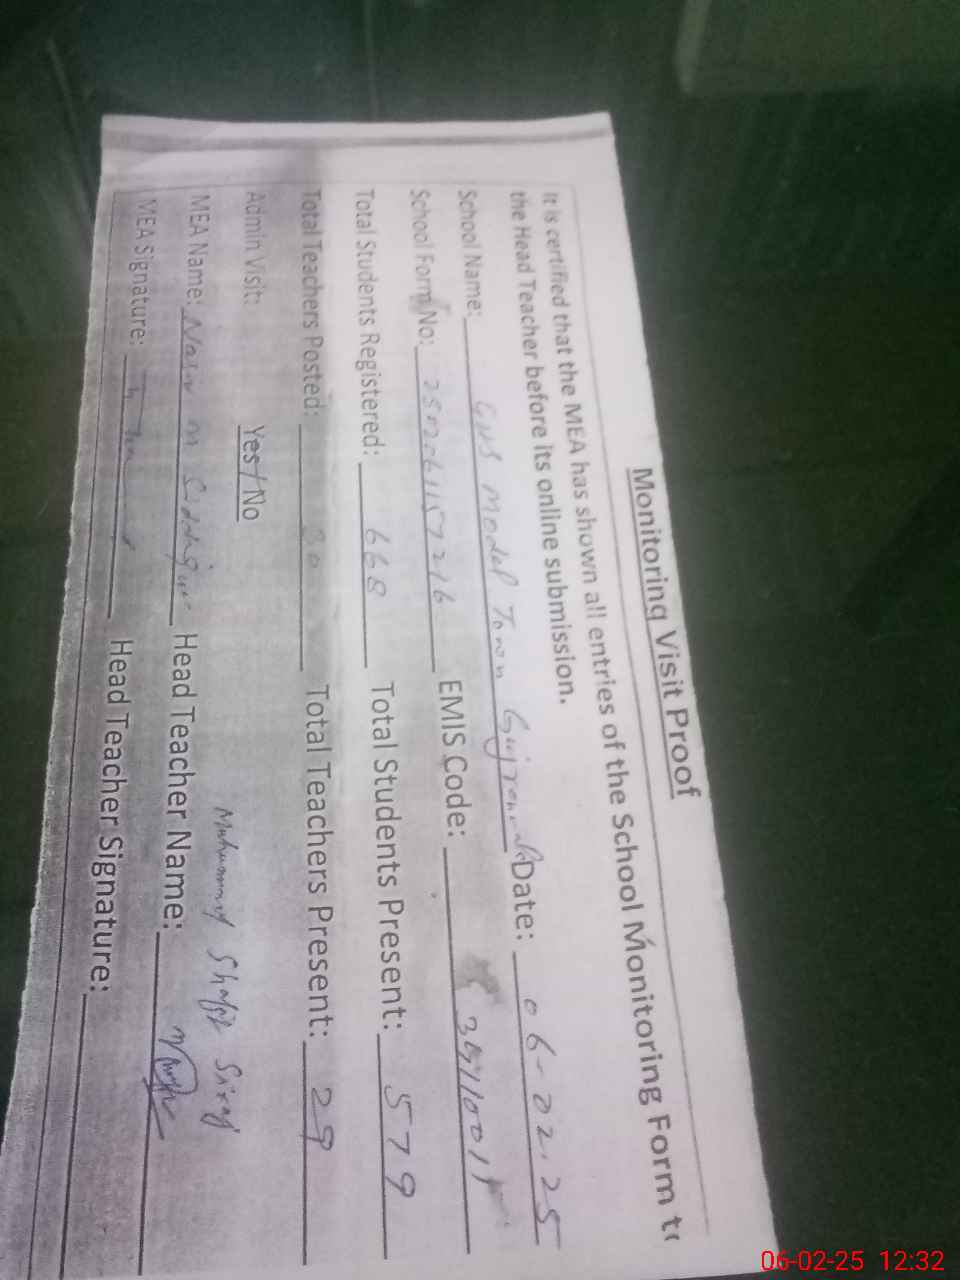 Monitoring Visit Proof
It is certified that the MEA has shown all entries of the School Monitoring Form to
the Head Teacher before its online submission.
School Name: GHS Model Town Gujranwala Date: 06-02-25
School Form No: EMIS Code:
Total Students Registered: 668 Total Students Present: 579
Total Teachers Posted: 30 Total Teachers Present: 29
Admin Visit: Yes / No
Muhammad Shafiq Siraj
MEA Name: Nasir M Siddique Head Teacher Name:
MEA Signature: Head Teacher Signature:
06-02-25 12:32